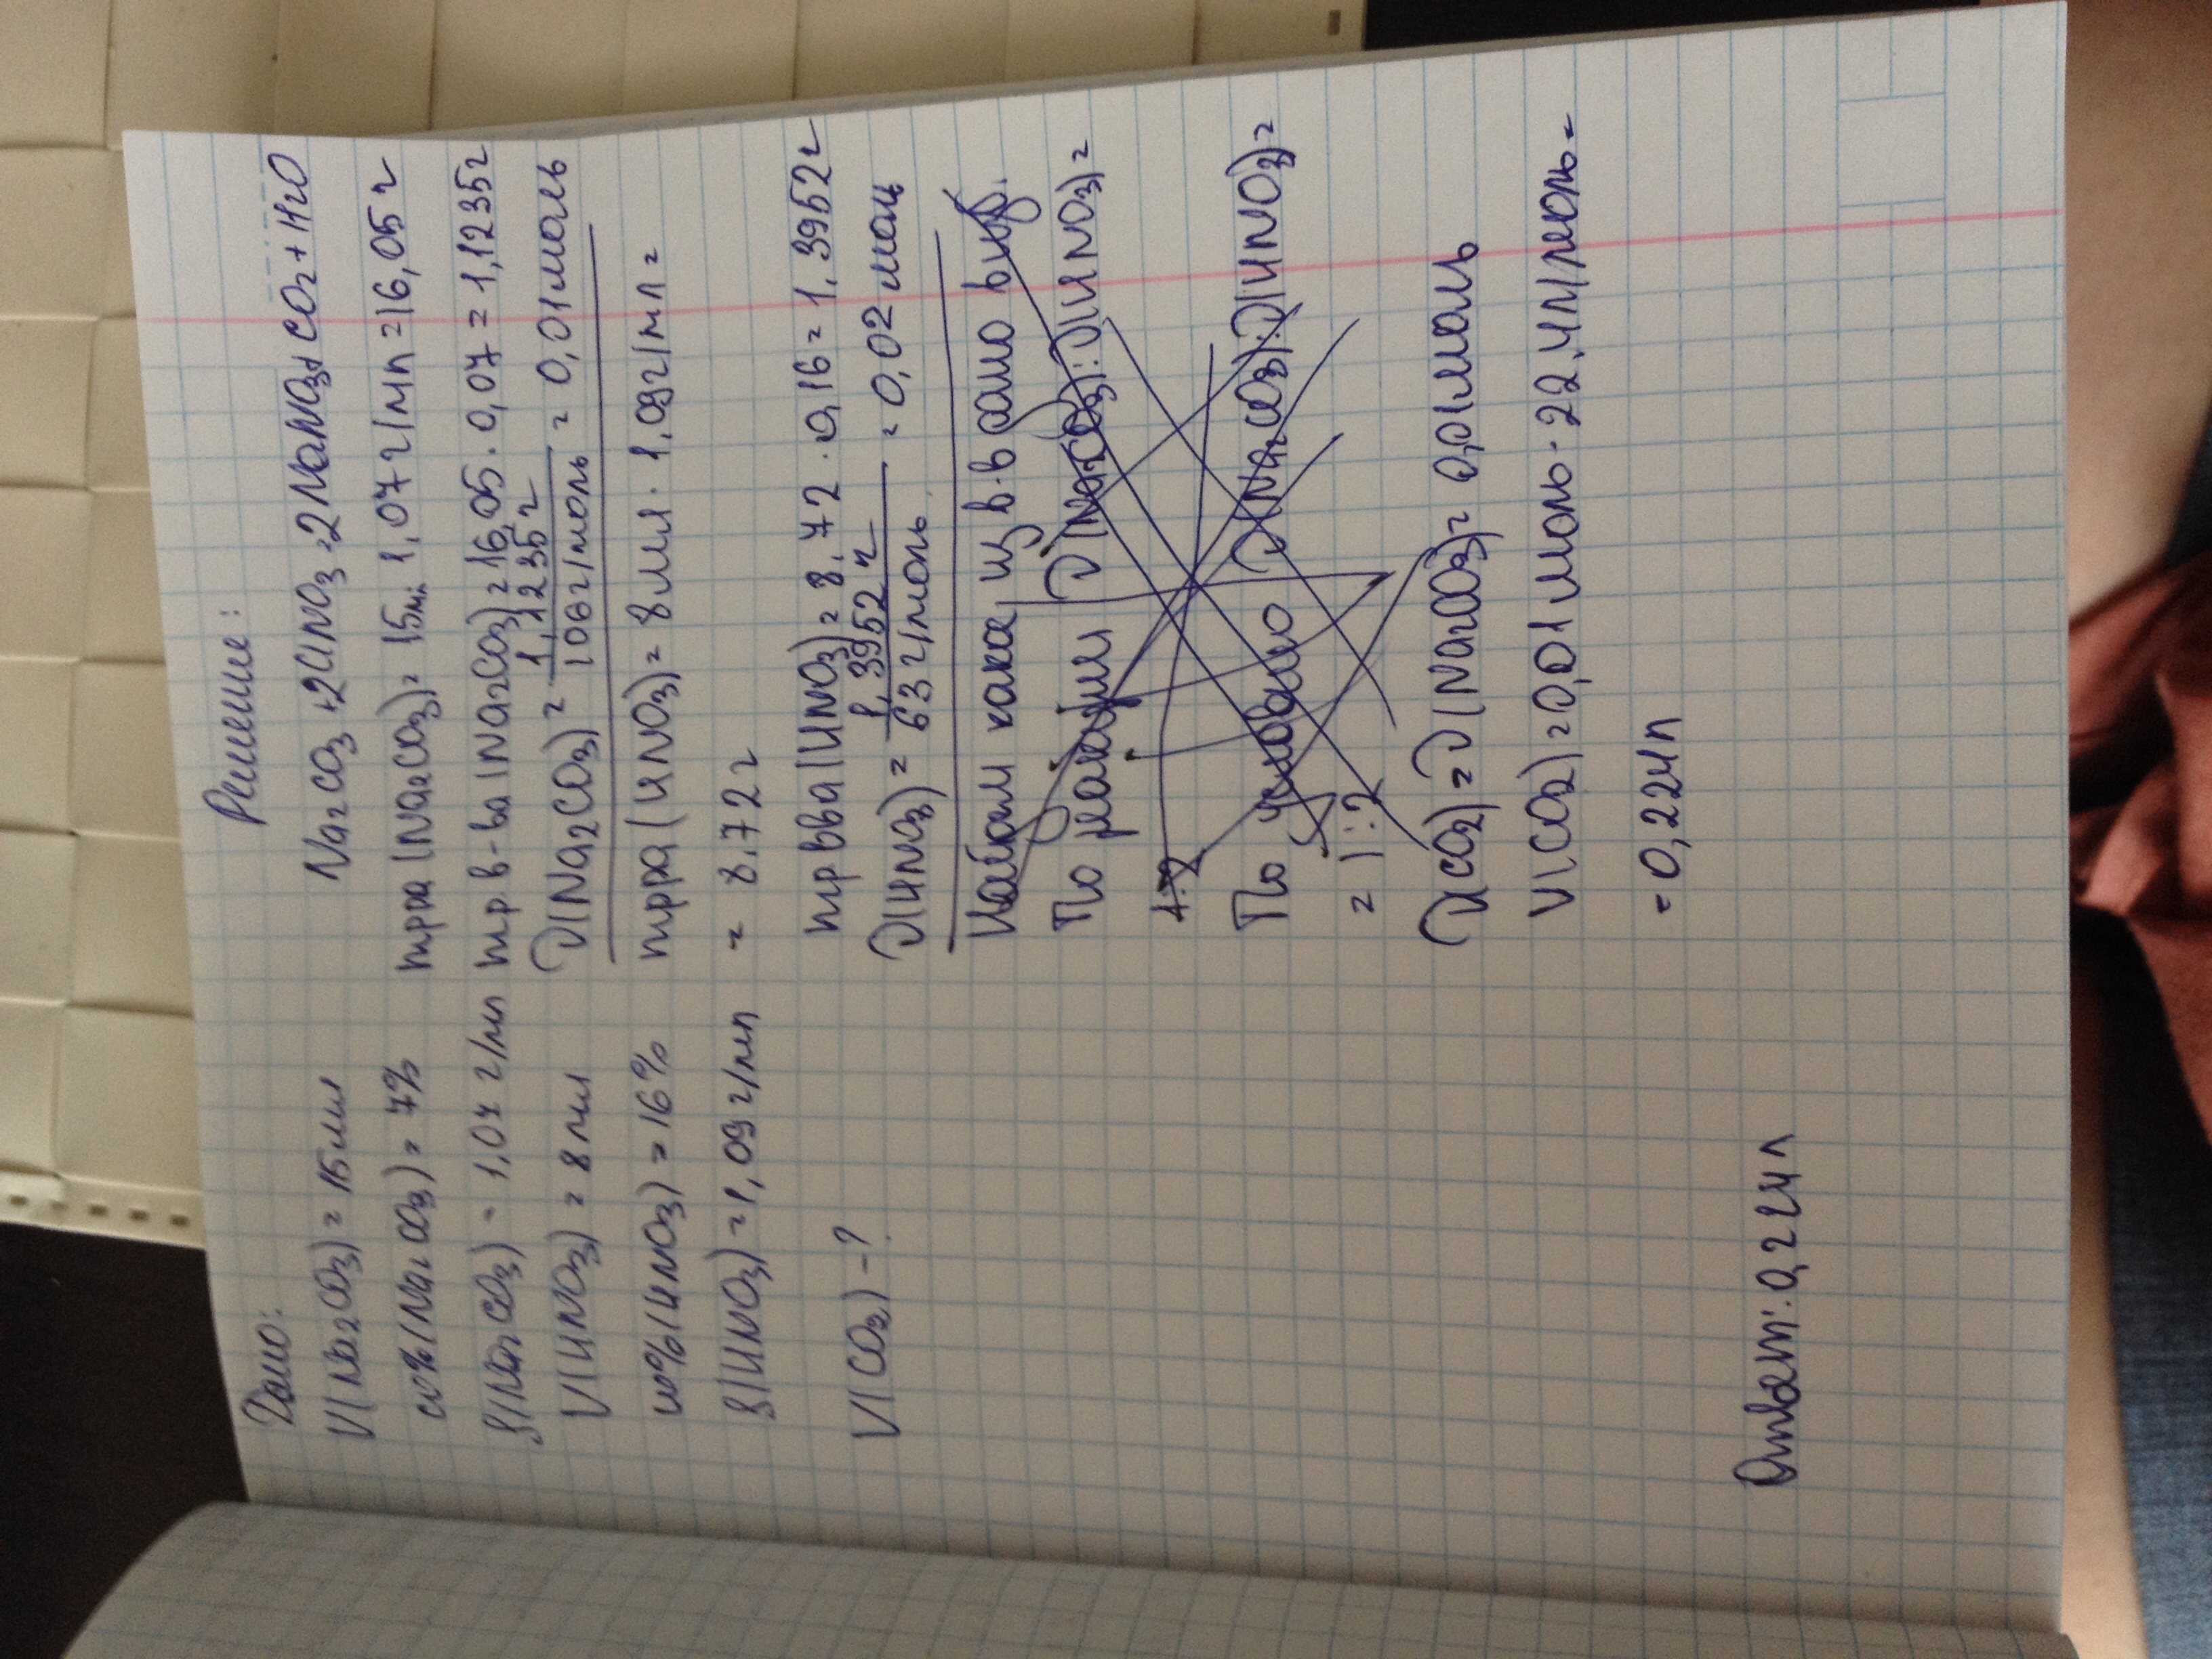 Дано:
V(Na2CO3) = 15мл
ω%(Na2CO3) = 7%
ρ(Na2CO3) = 1,07 г/мл
V(HNO3) = 8 мл
ω%(HNO3) = 16%
ρ(HNO3) = 1,09 г/мл
V(CO2) - ?
Решение:
Na2CO3 + 2HNO3 = 2NaNO3 + CO2 + H2O
mр-ра(Na2CO3) = 15мл · 1,07 г/мл = 16,05 г
mр.в-ва(Na2CO3) = 16,05 · 0,07 = 1,1235г
ν(Na2CO3) = 1,1235 г / 106 г/моль = 0,01 моль
mр-ра(HNO3) = 8 мл · 1,09 г/мл =
= 8.72 г
mр.в-ва(HNO3) = 8,72 · 0,16 = 1,3952 г
ν(HNO3) = 1,3952 г / 63 г/моль = 0,02 моль
Найдем какое из в-в
По реакции ν(Na2CO3):ν(HNO3) =
1:2
По условию ν(Na2CO3):ν(HNO3) =
= 1:2
ν(CO2) = ν(Na2CO3) = 0,01моль
V(CO2) = 0,01 моль · 22,4 л/моль =
= 0,224л
Ответ: 0,224 л